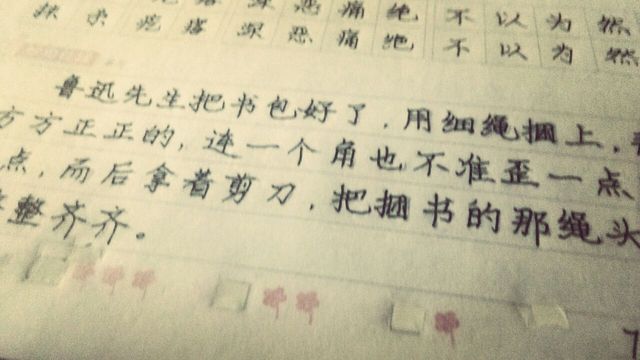 深 恶 痛 绝 不 以 为 然
疙 瘩 深 恶 痛 绝 不 以 为 然
鲁迅先生把书包好了，用细绳捆上，
方方正正的，连一个角也不准歪一点
点，而后拿着剪刀，把捆书的那绳头
整齐齐。